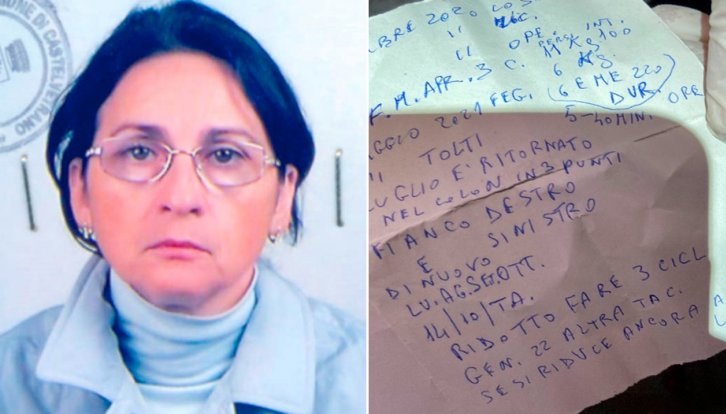 UNE DI CASTELVETRANO
BRE 2020 COS
11 "C.
11 OPE. INT.
PERSI 11 Kg 100
F. M. APR. 3 C. 6
GGIO 2021 FEG. (6 E MEZZO)
DUR. 5-40 MIN. ORE
TOLTI
LUGLIO E' RITORNATO
NEL COLON IN 3 PUNTI
FIANCO DESTRO
E SINISTRO
DI NUOVO
LU. AG. SE. OTT.
14/10/TA.
RIDOTTO FARE 3 CICL
GEN. 22 ALTRA TAC.
SE SI RIDUCE ANCORA